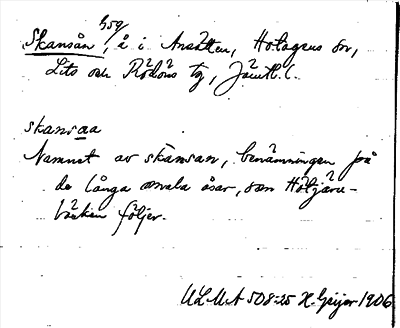 959
Skansån, å i Ansätten, Hotagens sn,
Lits och Rödöns tg, Jämtl. l.
skansaa
Namnet av skansan, benämningen på
de långa smala åsar, som Höltjärn-
bäcken följer.
ULMA 508:25 H. Geijer 1906